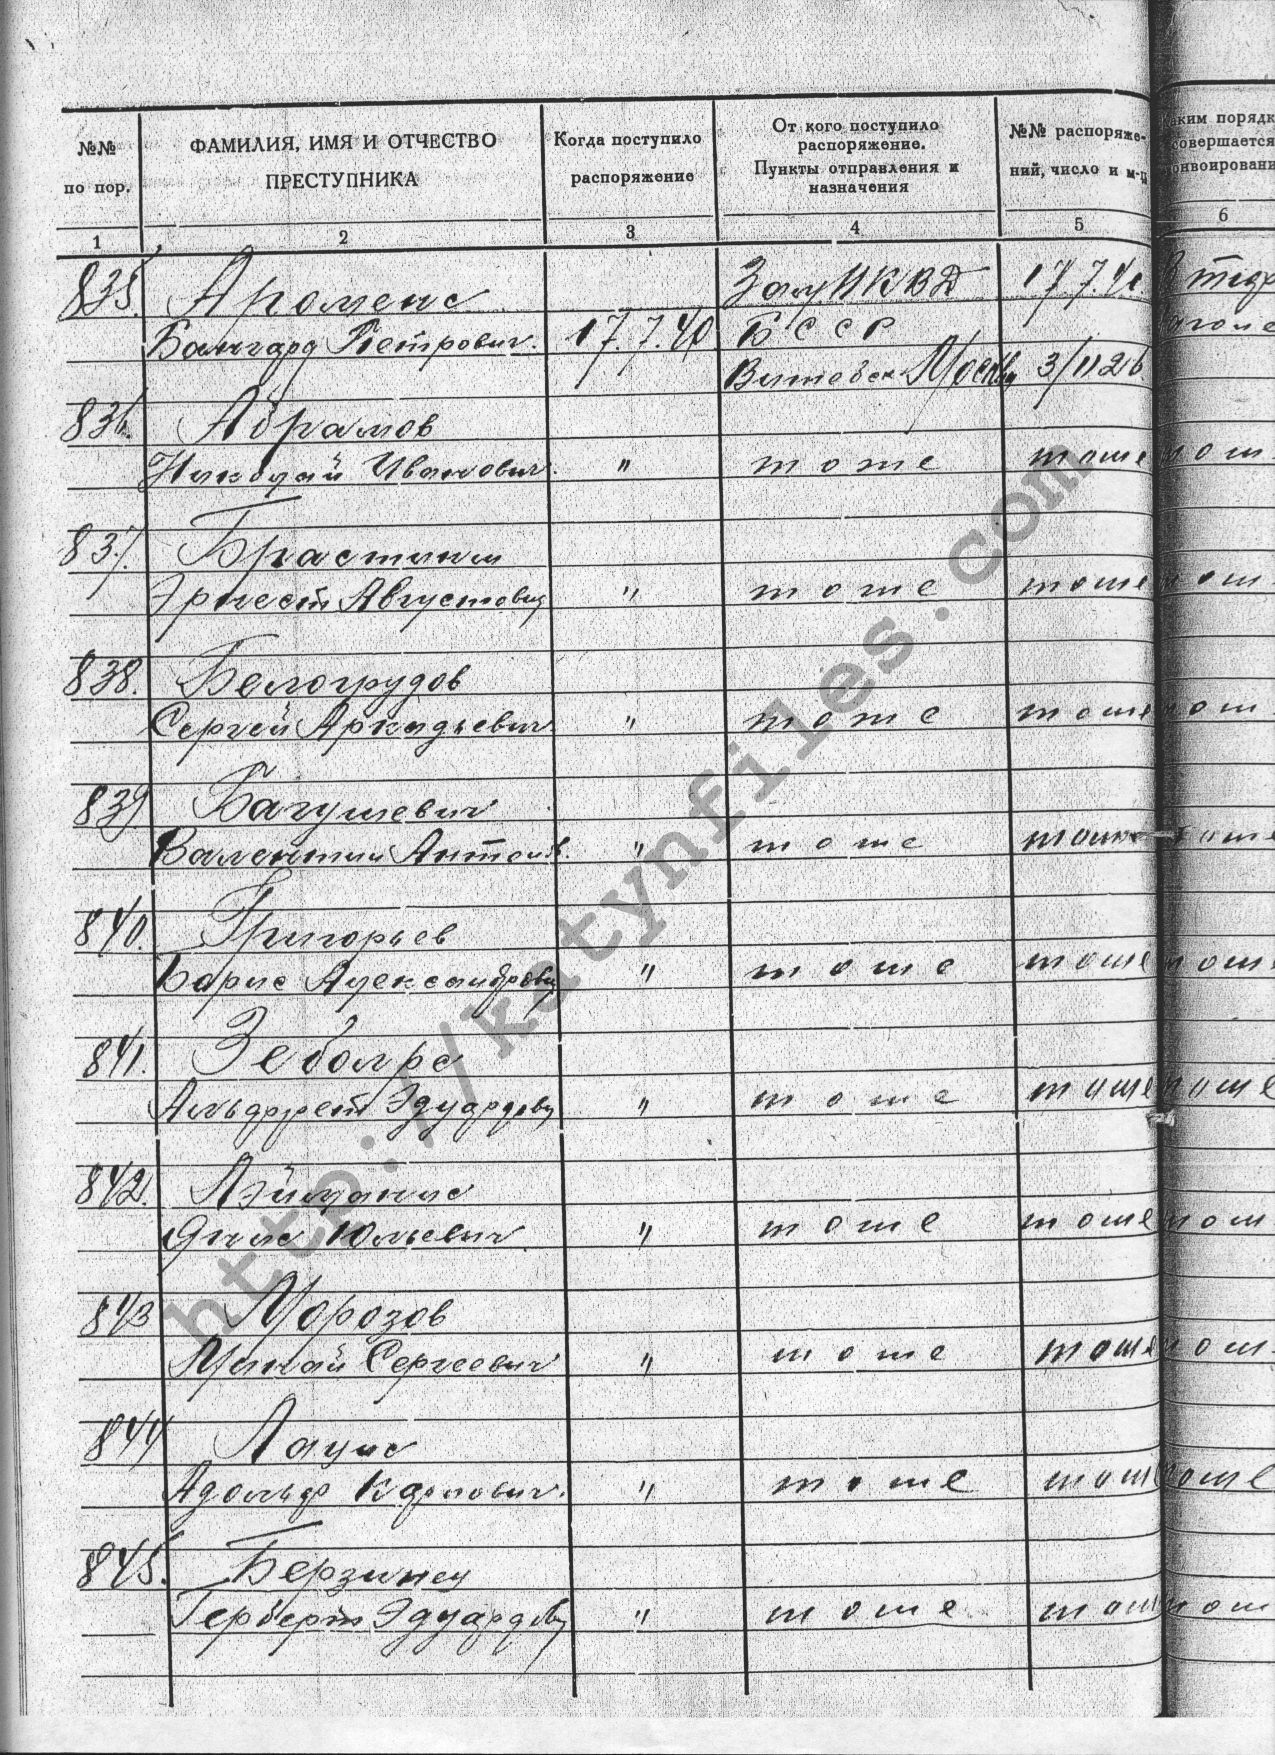 №№ по пор.
ФАМИЛИЯ, ИМЯ И ОТЧЕСТВО ПРЕСТУПНИКА
Когда поступило распоряжение
От кого поступило распоряжение. Пункты отправления и назначения
№№ распоряже- ний, число и м-ц
каким порядк совершается конвоировани
1 2 3 4 5 6
835. 17.7.41
Петрович. 17.7.40 БССР
Витебск Москва
836. Абрамов
Николай Иванович. " тоже тоже
837.
Эрнест Августович " тоже тоже
838. Белогрудов
Сергей Аркадьевич " тоже тоже
839 Багушевич
Валентин Антонов. " тоже тоже
840. Григорьев
Борис Александрович " тоже тоже тоже
841.
Альфред Эдуардович " тоже тоже тоже
842.
Янис Юльевич " тоже тоже
843 Морозов
Сергеевич " тоже тоже
844
Адольф Карлович. " тоже тоже
845. Берзинец
Герберт Эдуардович " тоже
http://katynfiles.com